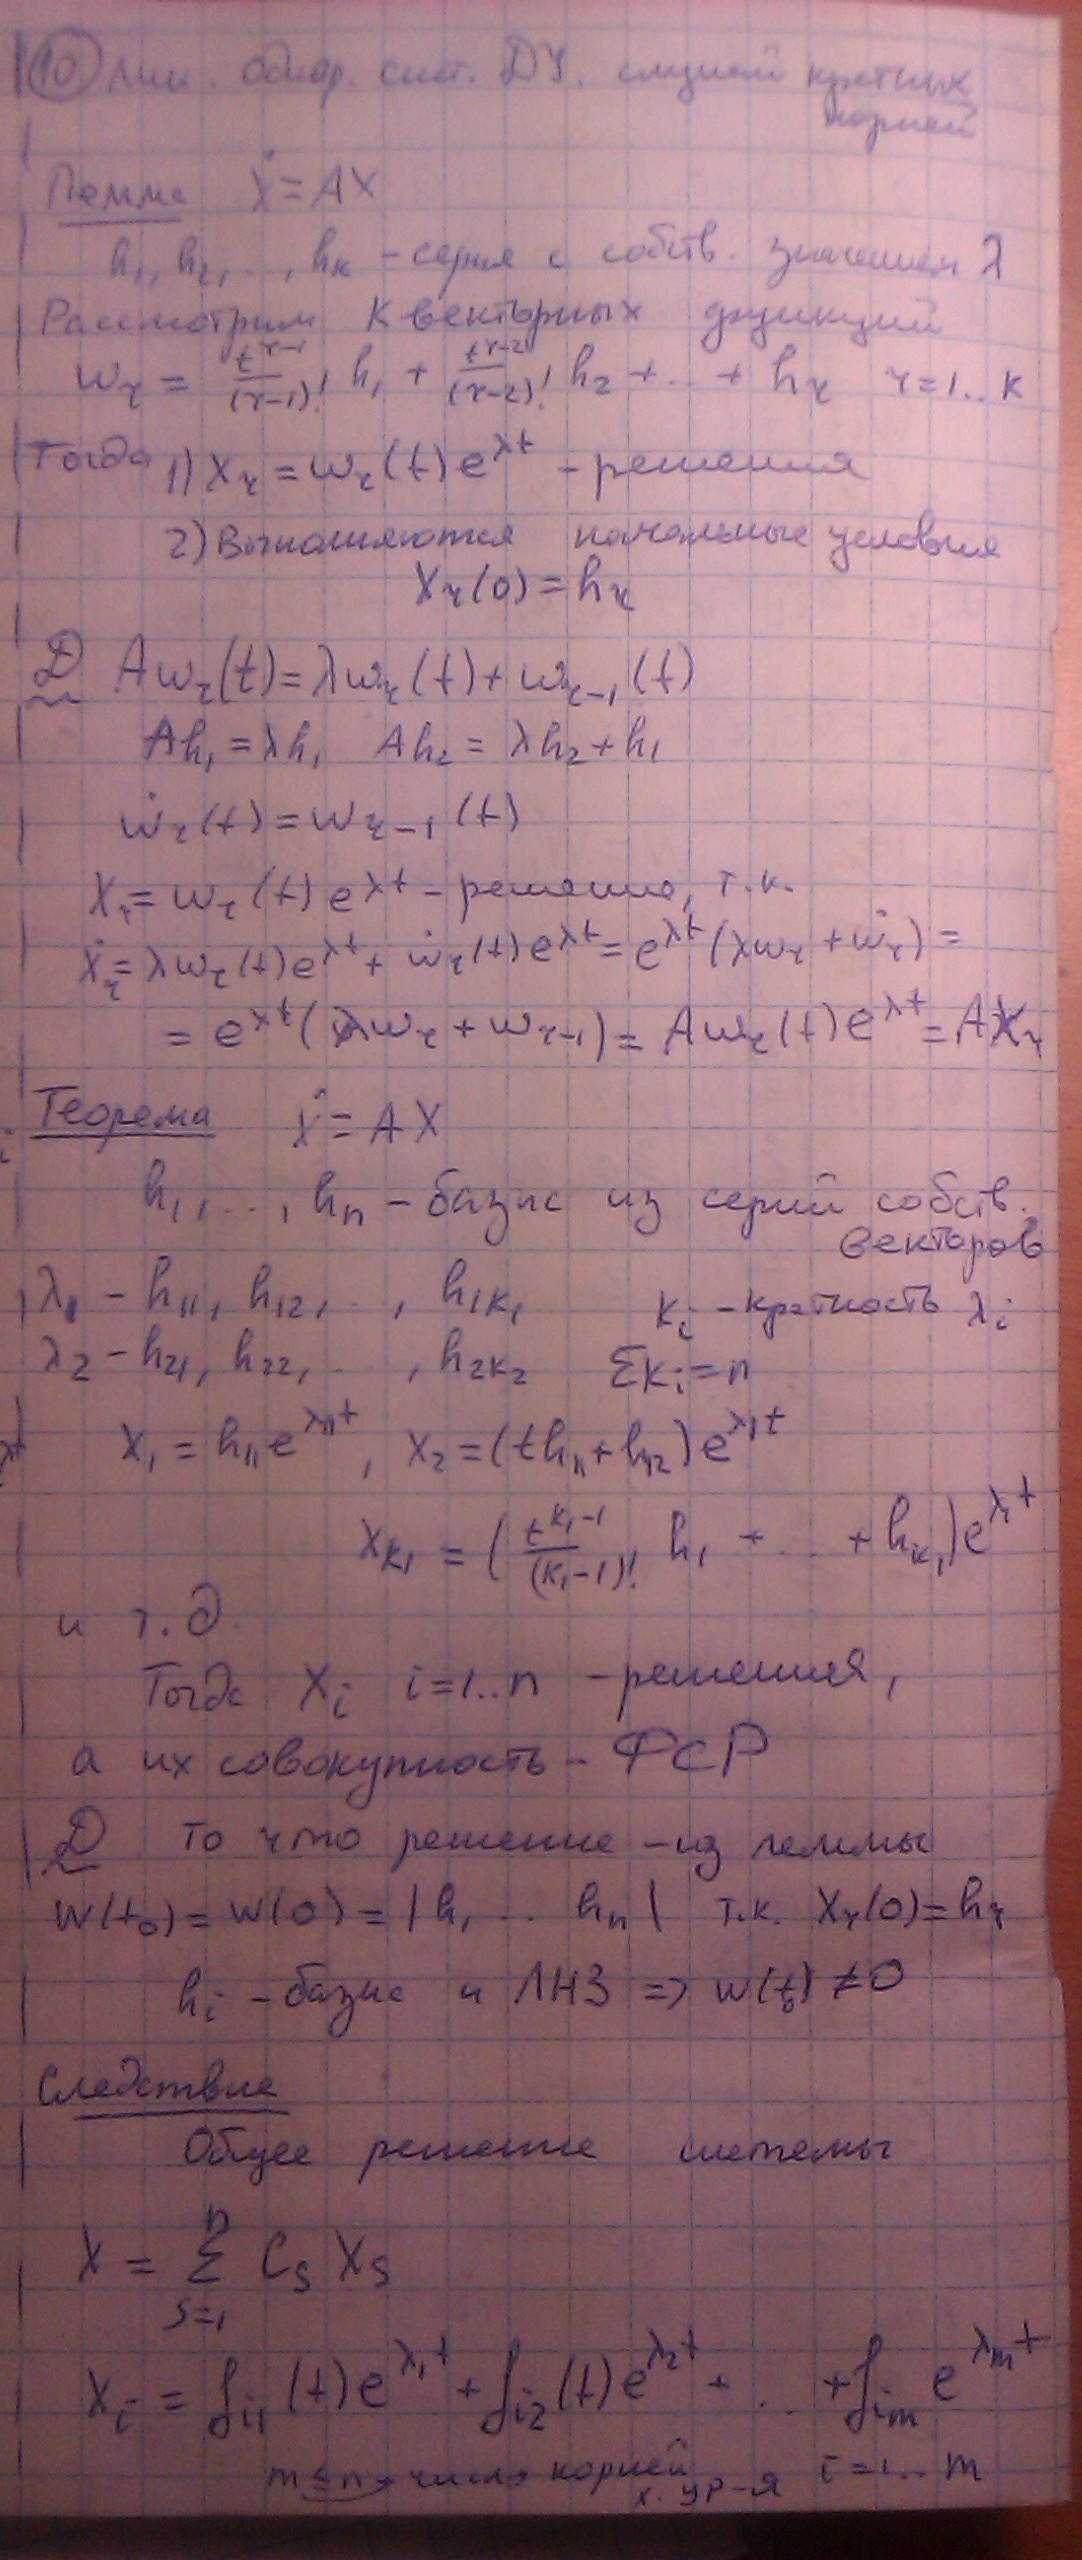 10 Лин. однор. сист. ДУ. случай кратных
корней
Лемма Ẋ = AX
h₁, h₂, ..., hₖ - серия с собств. значением λ
Рассмотрим K векторных функций
wᵣ = t^(r-1)/(r-1)! h₁ + t^(r-2)/(r-2)! h₂ + ... + hᵣ r=1..K
Тогда 1) Xᵣ = wᵣ(t) e^(λt) - решения
2) Выполняются начальные условия
Xᵣ(0) = hᵣ
Д Awᵣ(t) = λwᵣ(t) + wᵣ₋₁(t)
Ah₁ = λh₁ Ah₂ = λh₂ + h₁
ẇᵣ(t) = wᵣ₋₁(t)
Xᵣ = wᵣ(t) e^(λt) - решение, т.к.
Ẋᵣ = λwᵣ(t)e^(λt) + ẇᵣ(t)e^(λt) = e^(λt)(λwᵣ + ẇᵣ) =
= e^(λt)(λwᵣ + wᵣ₋₁) = Awᵣ(t)e^(λt) = AXᵣ
Теорема Ẋ = AX
h₁, ..., hₙ - базис из серий собств.
векторов
λ₁ - h₁₁, h₁₂, ..., h₁ₖ₁ kᵢ - кратность λᵢ
λ₂ - h₂₁, h₂₂, ..., h₂ₖ₂ Σkᵢ = n
X₁ = h₁₁e^(λ₁t), X₂ = (th₁₁ + h₁₂)e^(λ₁t)
Xₖ₁ = (t^(k₁-1)/(k₁-1)! h₁ + ... + h₁ₖ₁)e^(λ₁t)
и т.д.
Тогда Xᵢ i=1..n - решения,
а их совокупность - ФСР
Д То что решение - из леммы
W(t₀) = W(0) = |h₁ ... hₙ| т.к. Xᵣ(0) = hᵣ
hᵢ - базис и ЛНЗ => W(t₀) ≠ 0
Следствие
Общее решение системы
X = Σ_(s=1)^n Cₛ Xₛ
Xᵢ = fᵢ₁(t)e^(λ₁t) + fᵢ₂(t)e^(λ₂t) + ... + fᵢₘ e^(λₘt)
m ≤ n → число корней х. ур-я i = 1.. m